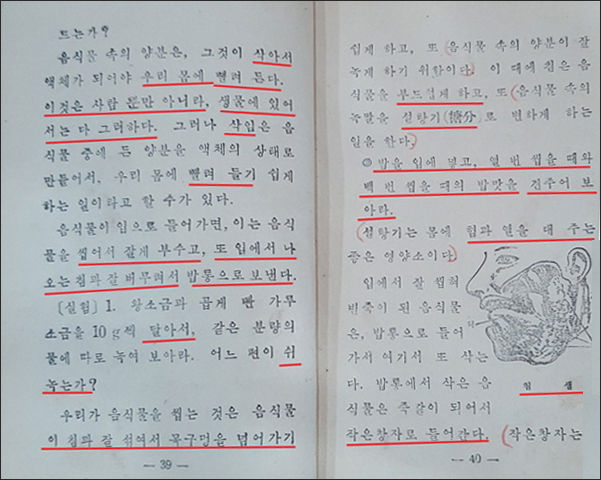 뜨는가?
음식물 속의 양분은, 그것이 삭아서
액체가 되어야 우리 몸에 빨려 든다.
이것은 사람 뿐만 아니라, 생물에 있어
서는 다 그러하다. 그러나 삭임은 음
식물 중에 든 양분을 액체의 상태로
만들어서, 우리 몸에 빨려 들기 쉽게
하는 일이라고 할 수가 있다.
음식물이 입으로 들어가면, 이는 음식
물을 씹어서 잘게 부수고, 또 입에서 나
오는 침과 잘 버무려서 밥통으로 보낸다.
[실험] 1. 왕소금과 곱게 빤 가루
소금을 10g씩 달아서, 같은 분량의
물에 따로 녹여 보아라. 어느 편이 쉬
녹는가?
우리가 음식물을 씹는 것은 음식물
이 침과 잘 섞여서 목구멍을 넘어가기
— 39 —
쉽게 하고, 또 음식물 속의 양분이 잘
녹게 하기 위함이다. 이 때에 침은 음
식물을 부드럽게 하고, 또 음식물 속의
녹말을 설탕기(糖分)로 변하게 하는
일을 한다.
밥을 입에 넣고, 열 번 씹을 때와
백 번 씹을 때의 밥맛을 견주어 보
아라.
설탕기는 몸에 힘과 열을 대 주는
좋은 영양소이다.
입에서 잘 씹혀
범죽이 된 음식물
은, 밥통으로 들어
가서 여기서 또 삭는
다. 밥통에서 삭은 음
식물은 죽같이 되어서
작은창자로 들어간다. (작은창자는
침샘
— 40 —